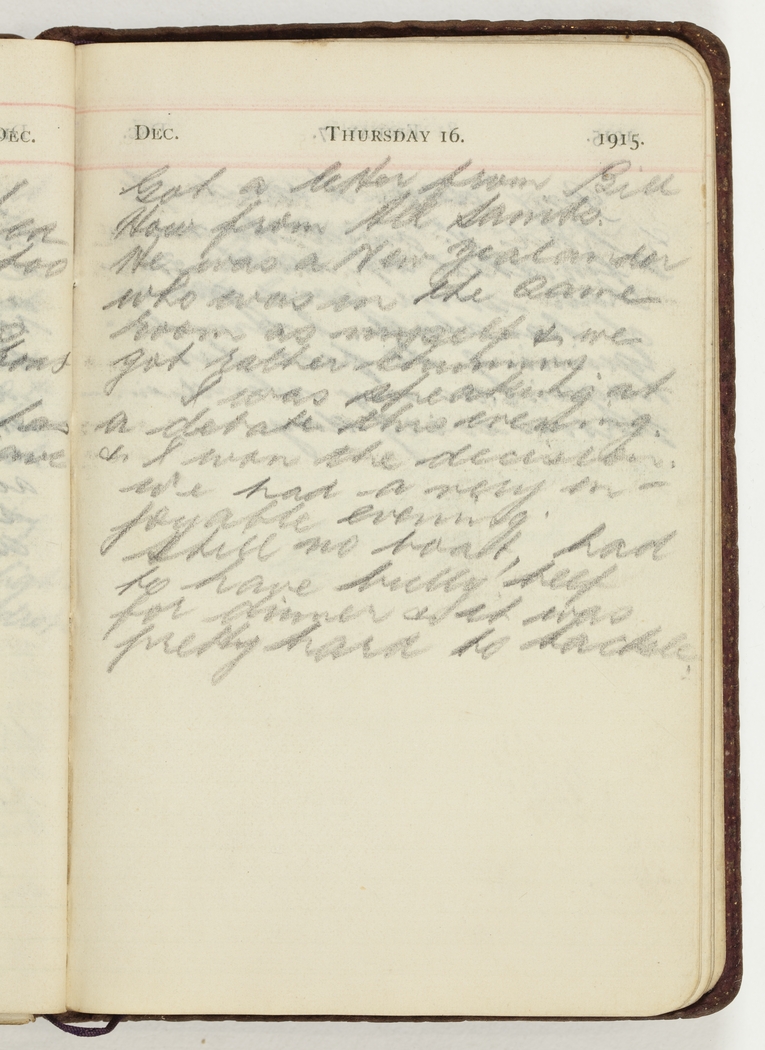 DEC.
DEC. THURSDAY 16. 1915.
Got a letter from Bill
How from All Saints.
He was a New Zealander
who was in the same
room as myself & we
got rather chummy.
I was speaking at
a debate this evening.
& I won the decision.
we had a very en-
joyable evening.
Still no boat, had
to have bully beef
for dinner & it was
pretty hard to tackle.